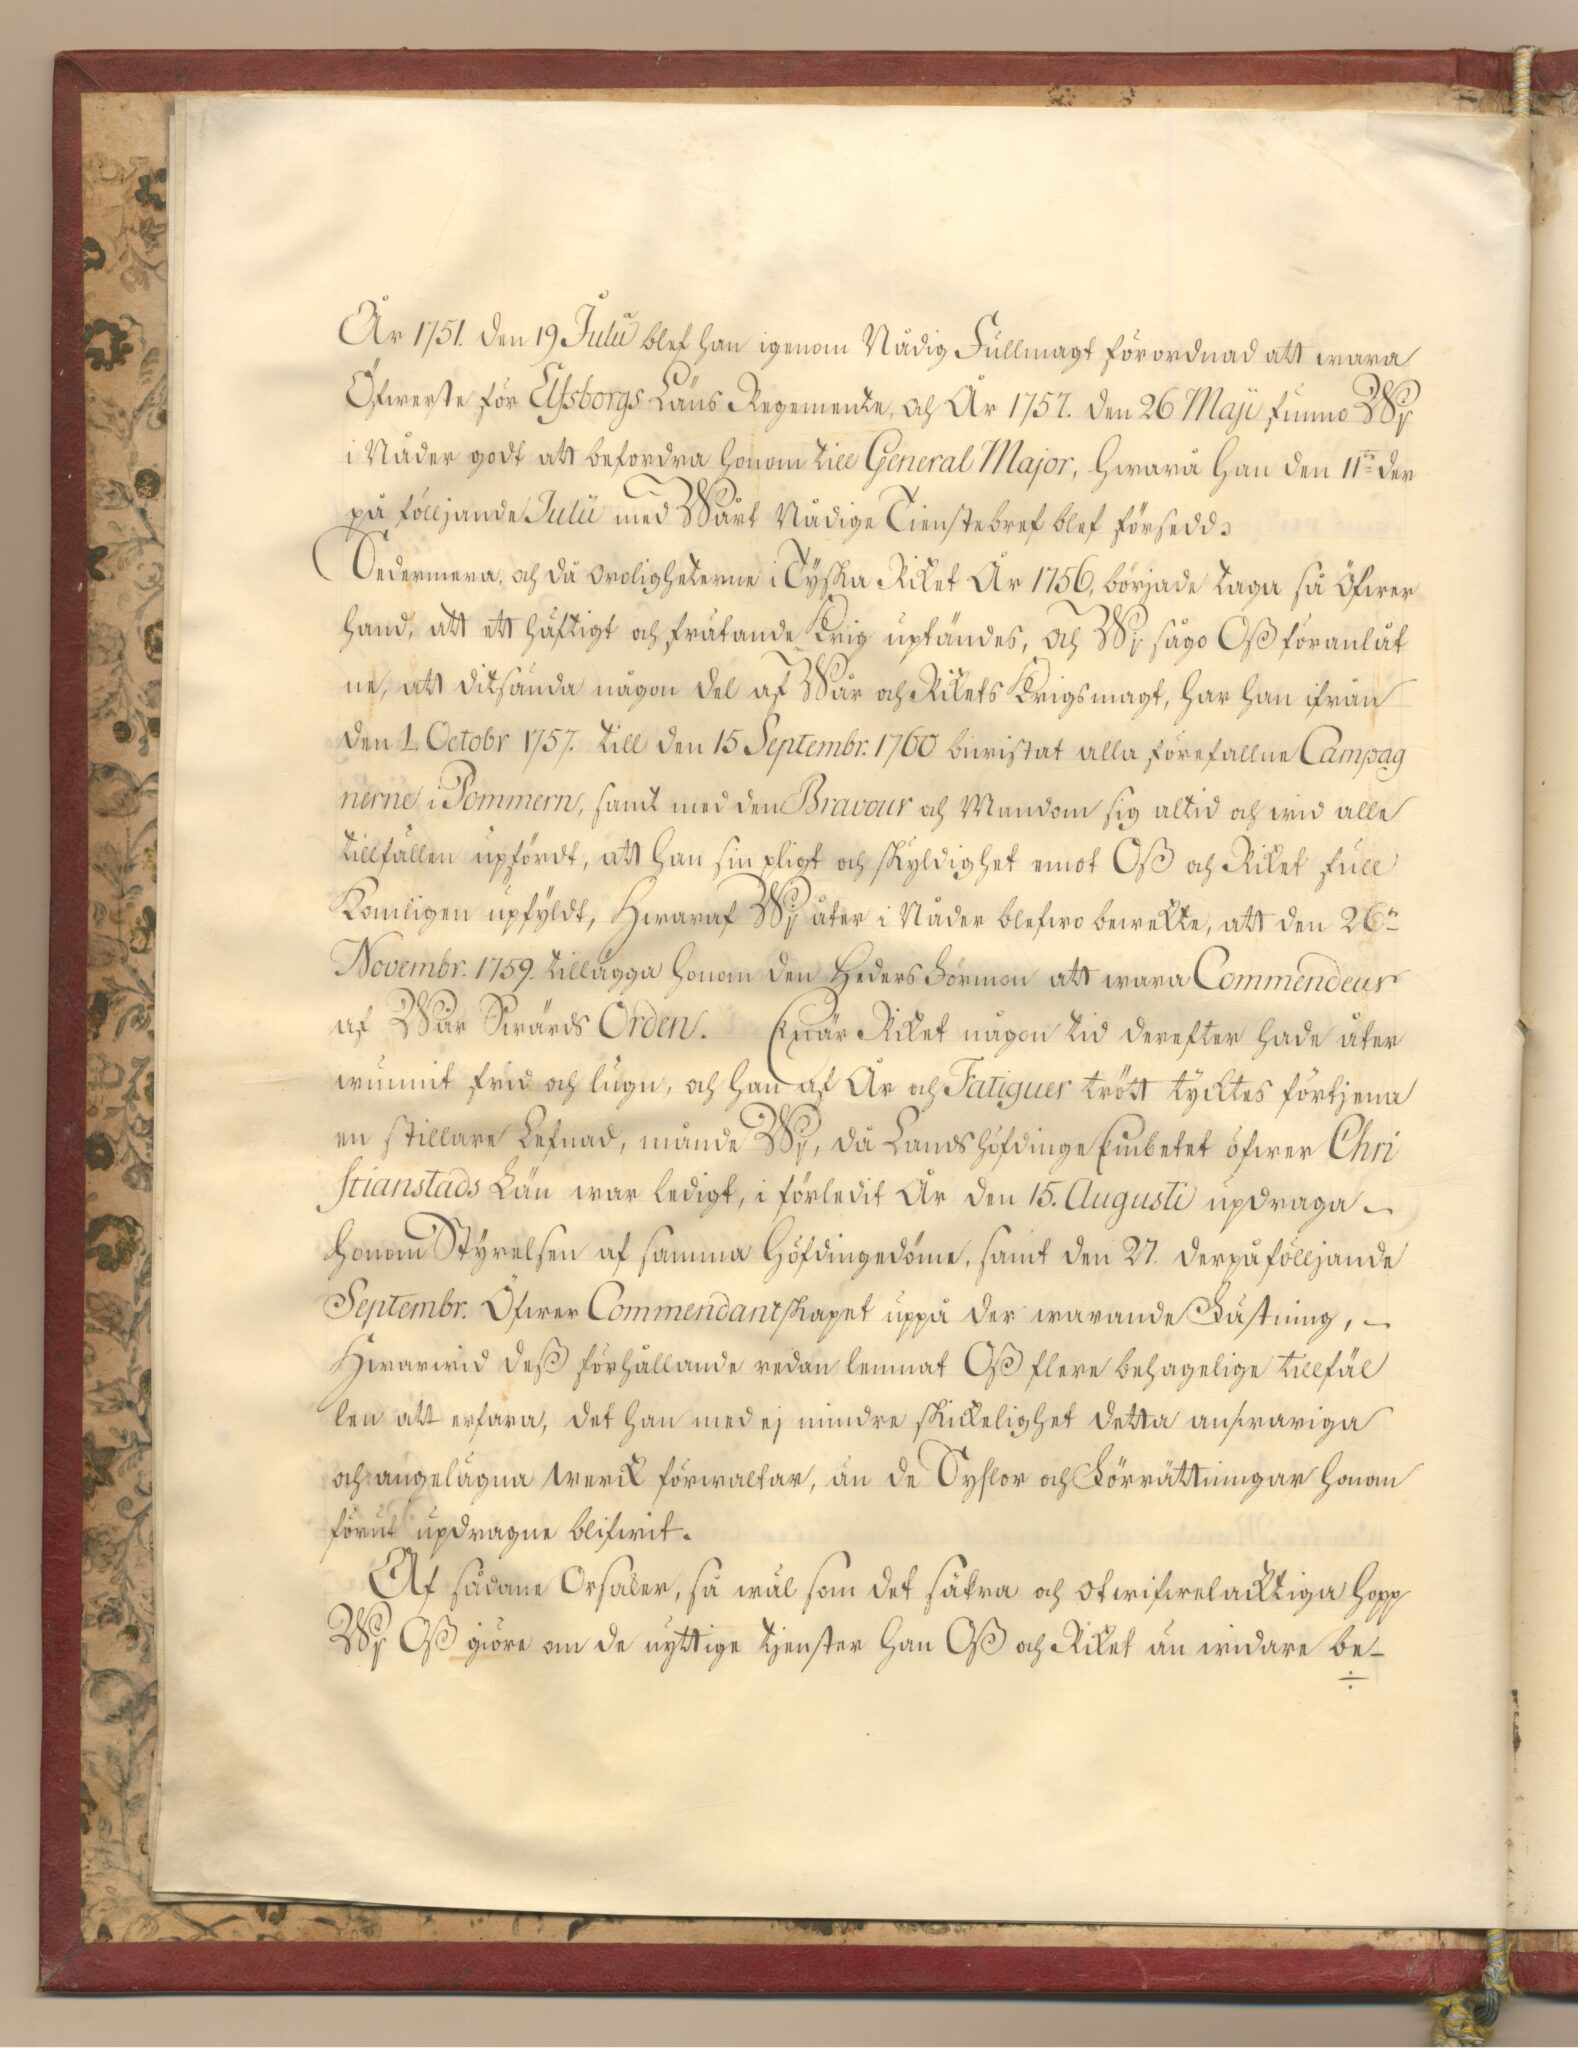 År 1751. den 19 Julii blef han igenom Nådig Fullmagt förordnad att wara
Öfwerste för Elfsborgs Läns Regemente, och År 1757. den 26 Maji funno Wj
i Nåder godt att befordra honom till General Major, hwarå han den 11te der
på följjande Julii med Wårt Nådige Tienstebref blef försedd.
Sedermera, och då oroligheterne i Tyska Riket År 1756, började taga så öfwer
hand, att ett häftigt och frätande Krig uptändes, och Wj sågo Oß föranlåt
ne, att ditsända någon del af Wår och Rikets Krigsmagt, har han ifrån
den 1. Octobr 1757. till den 15 Septembr. 1760 biwistat alla förefallne Campag
nerne i Pommern, samt med den Bravour och Mandom sig altid och wid alle
tillfällen upfördt, att han sin pligt och skyldighet emot Oß och Riket full
komligen upfyldt, Hwaraf Wj åter i Nåder blefwo bewekte, att den 26te
Novembr. 1759. tillägga honom den Heders Förmon att wara Commendeur
af Wår Swärds Orden. Enär Riket någon tid derefter hade åter
wunnit frid och lugn, och han af År och Fatiguer trött tycktes förtjena
en stillare Lefnad, månde Wj, då Landshöfdinge Embetet öfwer Chri
stianstads Län war ledigt, i förledit År den 15. Augusti updraga
honom Styrelsen af samma Höfdingedöme, samt den 27. derpåfölljande
Septembr. Öfwer Commendantskapet uppå der warande Fästning,
Hwarwid deß förhållande redan lemnat Oß flere behagelige tillfäl
len att erfara, det han med ej mindre skickelighet detta answariga
och angelägna werck förwaltar, än de Sysslor och Förrättningar honom
förut updragne blifwit.
Af sådane Orsaker, så wäl som det säkra och otwifwelacktiga hopp
Wj Oß giöre om de nyttige tjenster han Oß och Riket än widare be-